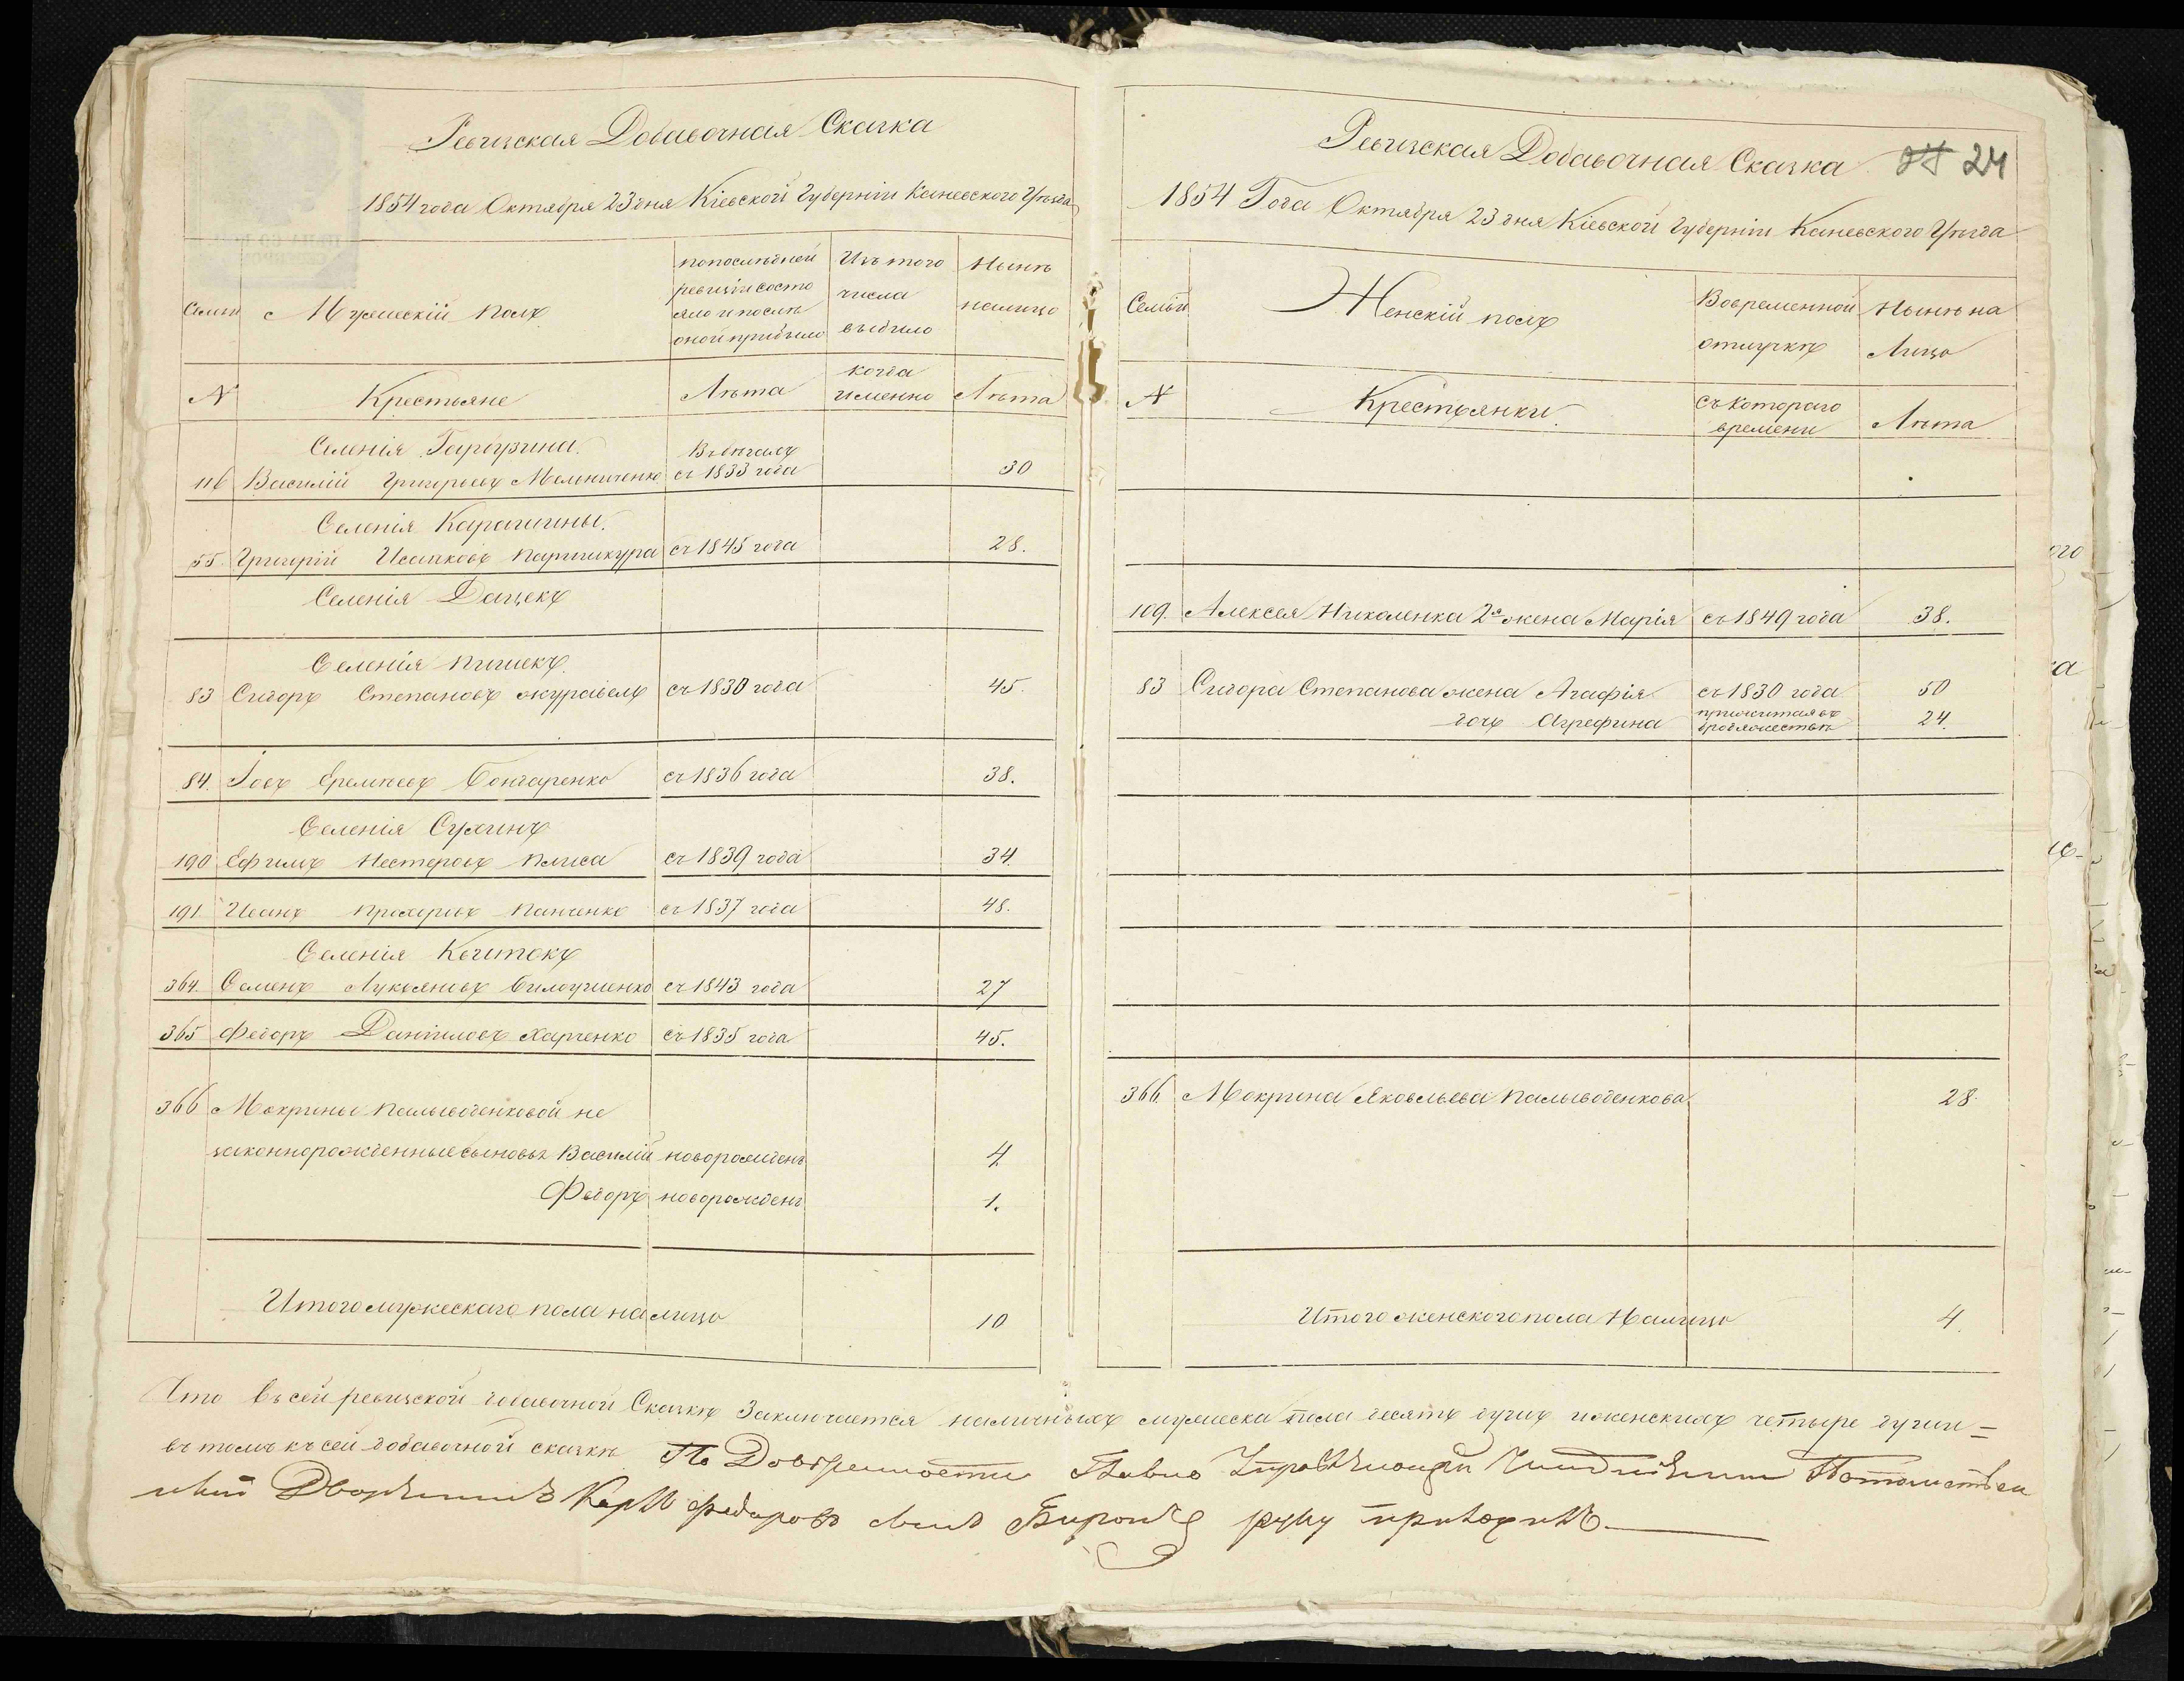 Ревизская Добавочная Сказка
1854 года Октября 23 дня Кіевской Губерніи Каневского Уѣзда
Семьи
Мужескій полъ
по послѣдней
ревизіи состо
яло и послѣ
оной прибыло
Изъ того
числа
выбыло
Нынѣ
налицо
№
Крестьяне
Лѣта
когда
именно
Лѣта
Селенія
Въ бѣгахъ
116 Василій Григорьевъ Мельниченко съ 1833 года 30
Селенія Карашины.
55. Григорій съ 1845 года 28.
Селенія Дацекъ
Селенія Пишекъ.
83 Сидоръ Степановъ Журавель съ 1830 года 45.
84. Іовъ Еремѣевъ Бондаренко съ 1836 года 38.
Селенія Сухинъ
190 Ефимъ Нестеровъ Лписа съ 1839 года 34.
191. Иванъ Прохоровъ Панченко съ 1837 года 48.
Селенія Квитокъ
364. Семенъ Лукьяновъ съ 1843 года 27
365 Федоръ Даніиловъ Харченко съ 1835 года 45.
366 Мокрины Пальводенковой не
законнорожденные сыновья Василій новорожденъ 4
Федоръ новорожденъ 1.
Итого мужескаго пола налицо 10
Ревизская Добавочная Сказка 24
1854 Года Октября 23 дня Кіевской Губерніи Каневского Уѣзда
Семьи
Женскій полъ
Во временной
отлучкѣ
Нынѣ на
Лицо
№
Крестьянки.
съ котораго
времени
Лѣта
109. Алексея Николенка 2я жена Марія съ 1849 года 38.
83 Сидора Степанова жена Агафія съ 1830 года 50
дочь Агрефина прижитая въ
бродяжествѣ 24.
366. Мокрина Яковлева Пальводенкова 28.
Итого женского пола Налицо 4.
Что въ сей ревизской добавочной Сказкѣ Заключается наличныхъ мужеска пола десять душъ и женскихъ четыре души =
въ томъ къ сей добавочной сказкѣ По Довѣренности Главно Управляющій Потомствен
ный Дворянинъ Карлъ Федоровъ сынъ руку приложилъ